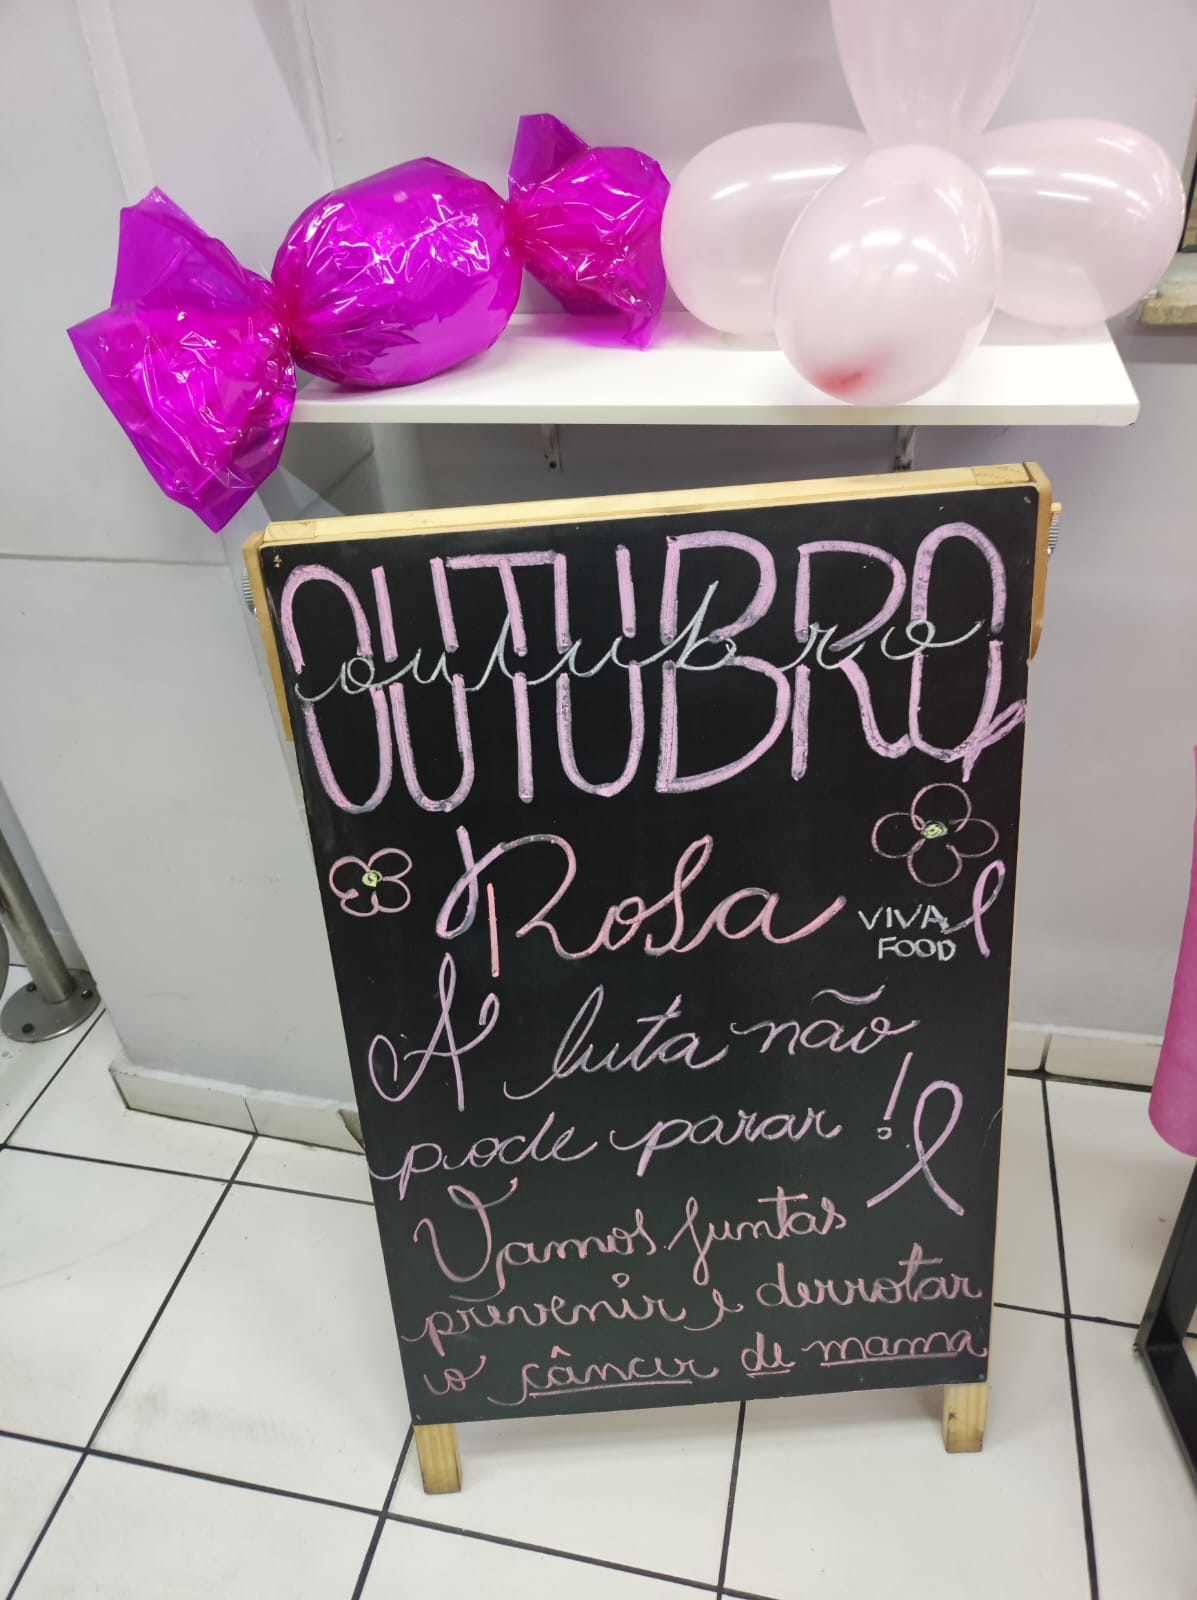 OUTUBRO
outubro
Rosa
VIVA
FOOD
A luta não
pode parar!
Vamos juntas
prevenir e derrotar
o câncer de mama